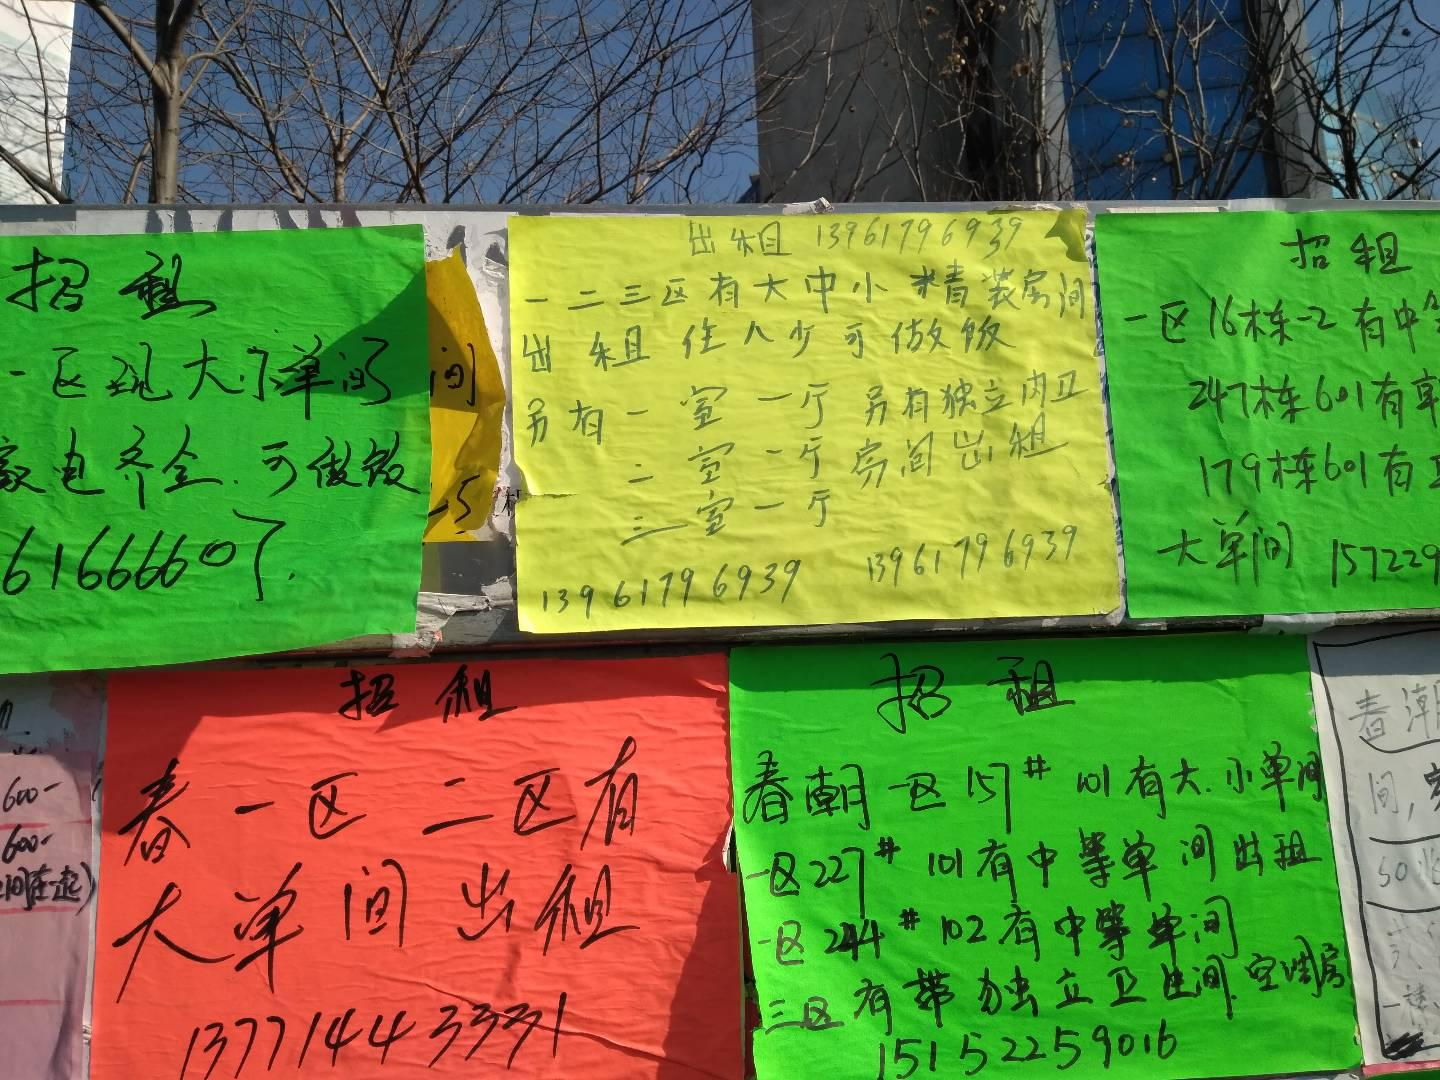 招租
一区现大小单间
家电齐全.可做饭
61666607.
间
出租 13961796939
一二三区有大中小精装房间
出租住人少可做饭
另有一室一厅 另有独立内卫
二室一厅 房间出租
三室一厅
13961796939 13961796939
招租
一区16栋-2有中等
247栋601有
179栋601有
大单间 157229
招租
春一区二区有
大单间出租
13771443331
招租
春朝一区157# 101有大.小单间
一区227# 101有中等单间出租
一区244# 102有中等单间
三区有带独立卫生间.空调房
15152259016
600-
600-
春潮
间,
50
一楼